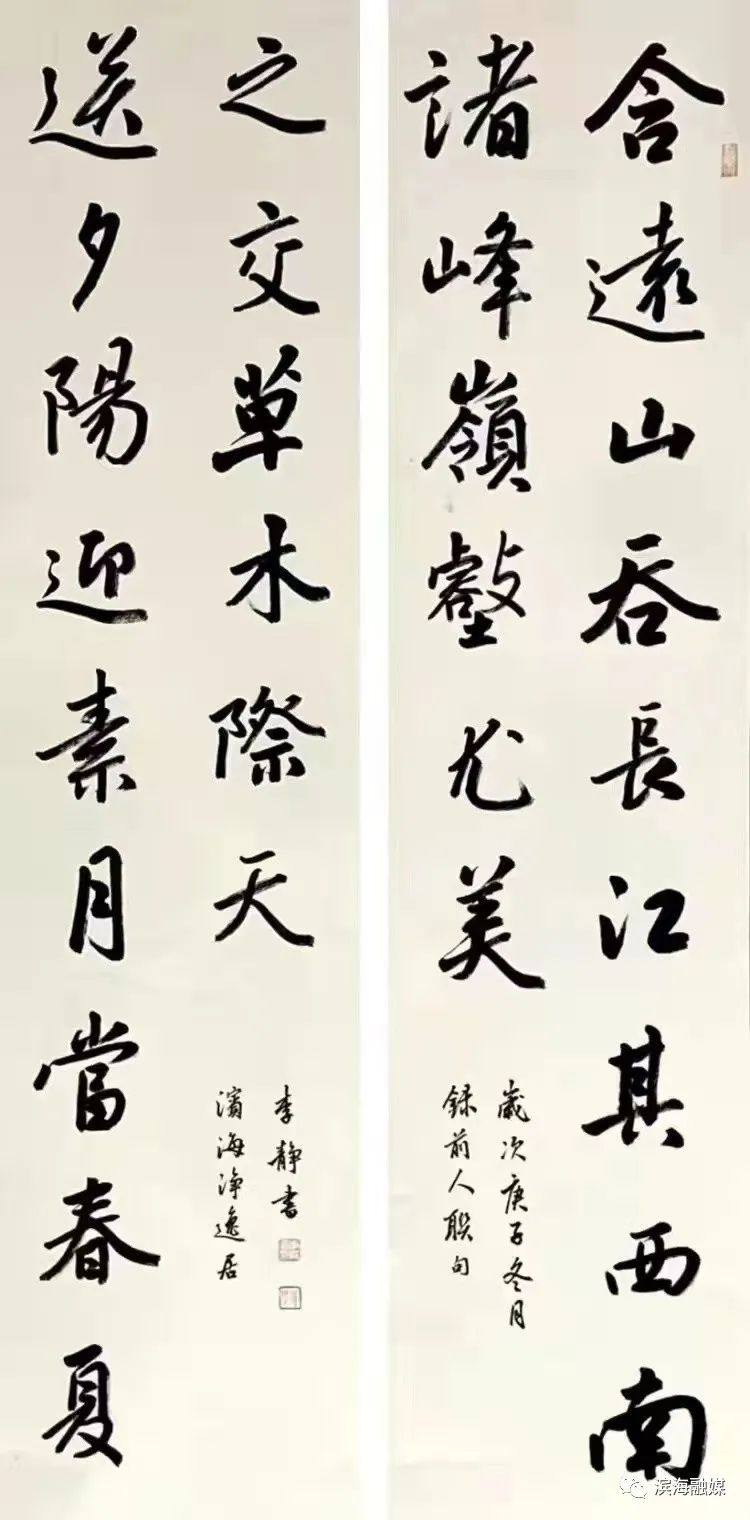 含遠山吞長江其西南
諸峰嶺壑尤美
歲次庚子冬月
録前人聯句
送夕陽迎素月當春夏
之交草木際天
濱海淨逸居
李静書
滨海融媒